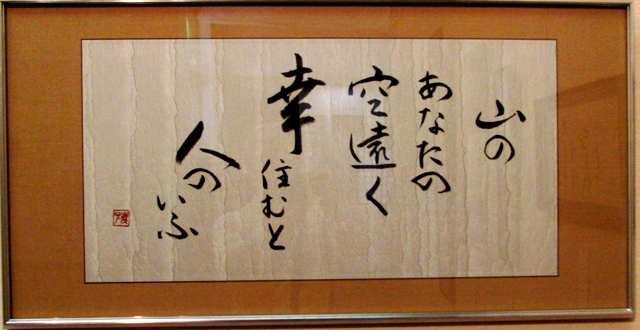 山の
あなたの
空遠く
幸
住むと
人の
いふ